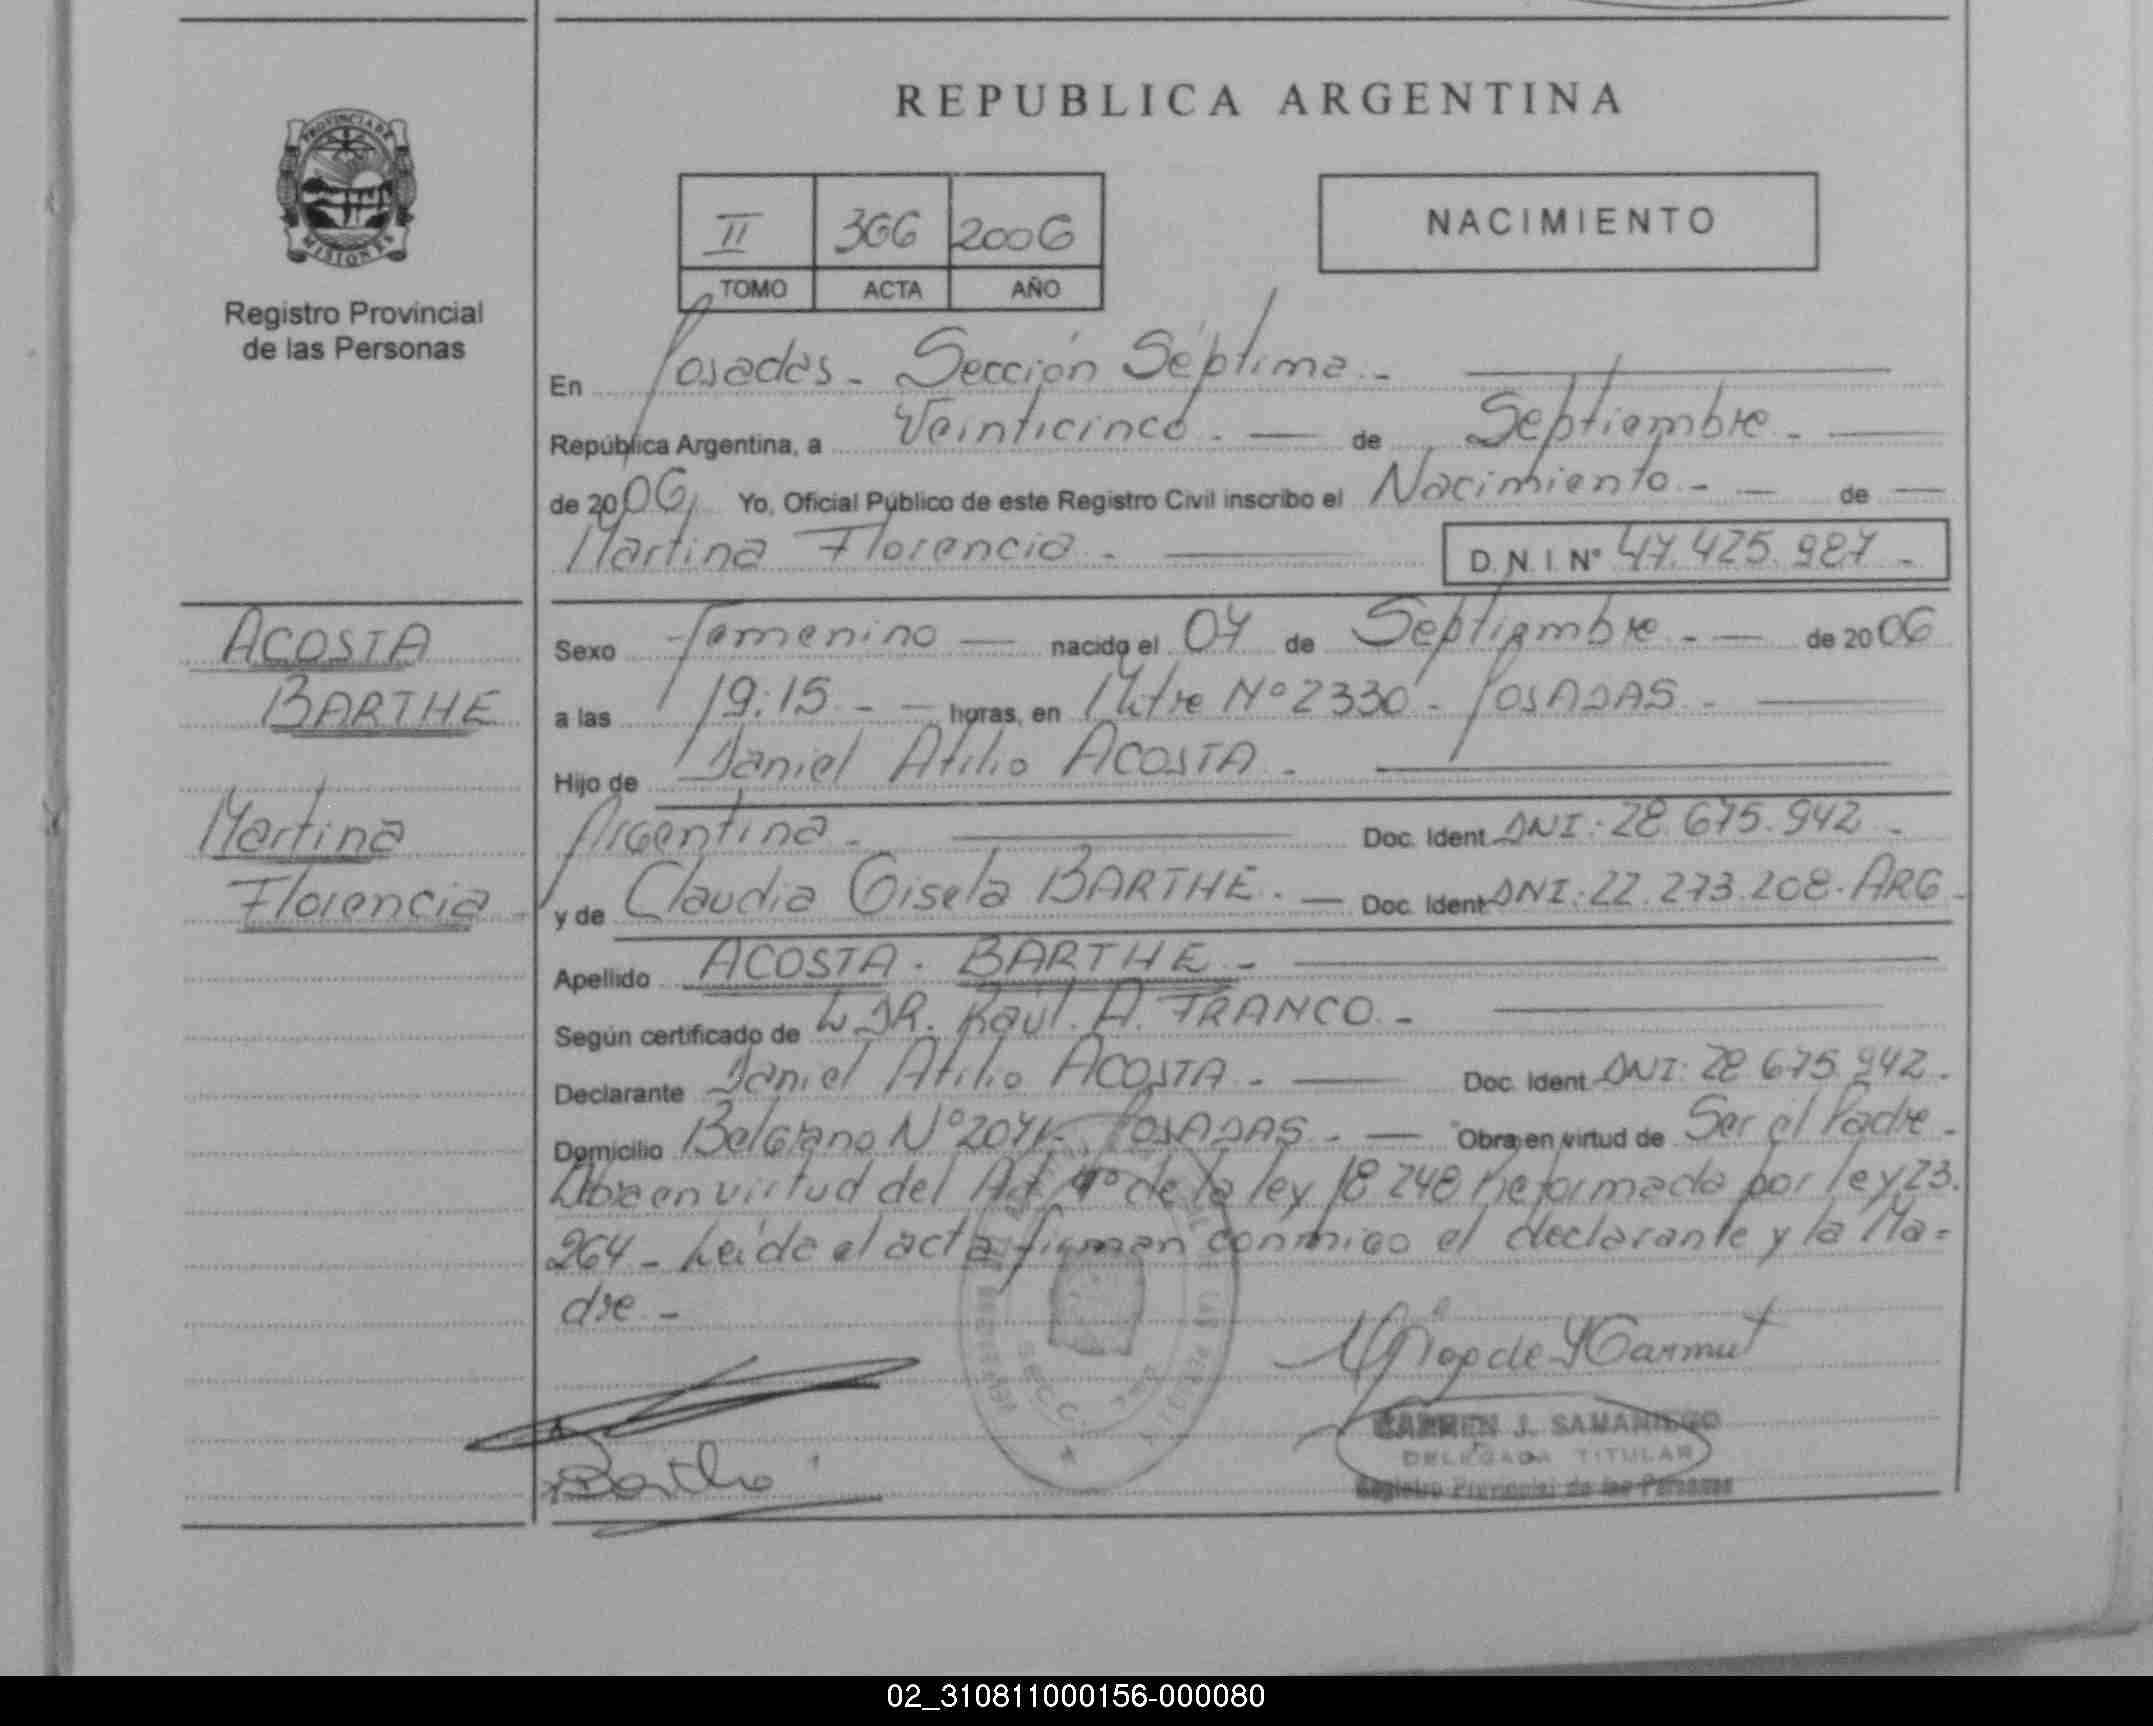 REPUBLICA ARGENTINA
PROVINCIA DE
MISIONES
Registro Provincial
de las Personas
II 366 2006
TOMO ACTA AÑO
NACIMIENTO
En Posadas - Sección Séptima -
República Argentina, a Veinticinco . — de Septiembre . —
de 2006, Yo, Oficial Público de este Registro Civil inscribo el Nacimiento - — de —
Martina Florencia - D.N.I. Nº 47.425.987 -
ACOSTA
BARTHE
Martina
Florencia -
Sexo Femenino — nacido el 07 de Septiembre - — de 2006
a las 19:15 - — horas, en Mitre Nº 2330 - POSADAS -
Hijo de Daniel Atilio ACOSTA -
Argentina - Doc. Ident. DNI: 28.675.942 -
y de Claudia Gisela BARTHE . — Doc. Ident. DNI: 22.273.208 - ARG -
Apellido ACOSTA - BARTHE -
Según certificado de DR. Raúl. A. FRANCO -
Declarante Daniel Atilio ACOSTA - Doc. Ident. DNI: 28.675.942 -
Domicilio Belgrano Nº POSADAS - — Obra en virtud de Ser el Padre -
Obra en virtud del Art 4º de la ley 18 248 Reformada por ley 23.
264 - Leída el acta firman conmigo el declarante y la Ma-
dre -
Barthe
CARMEN J. SAMANIEGO
DELEGADA TITULAR
Registro Provincial de las Personas
02_310811000156-000080